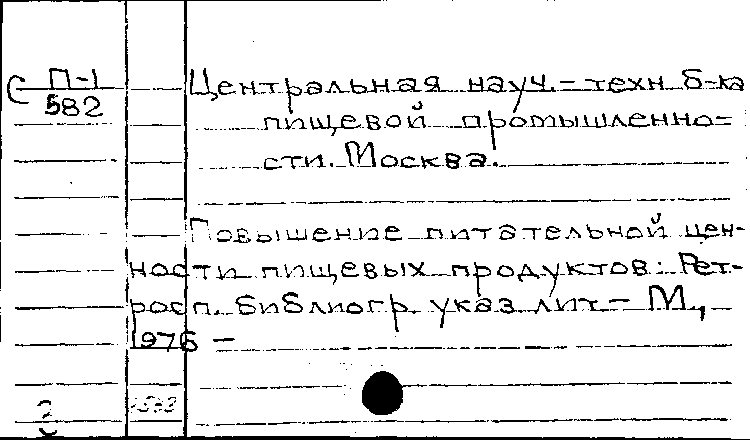 С П-1 Центральная науч.-техн б-ка
582 пищевой промышленно-
сти. Москва.
Повышение питательной цен-
ности пищевых продуктов: Рет-
росп. библиогр. указ. лит. – М.,
1976 –